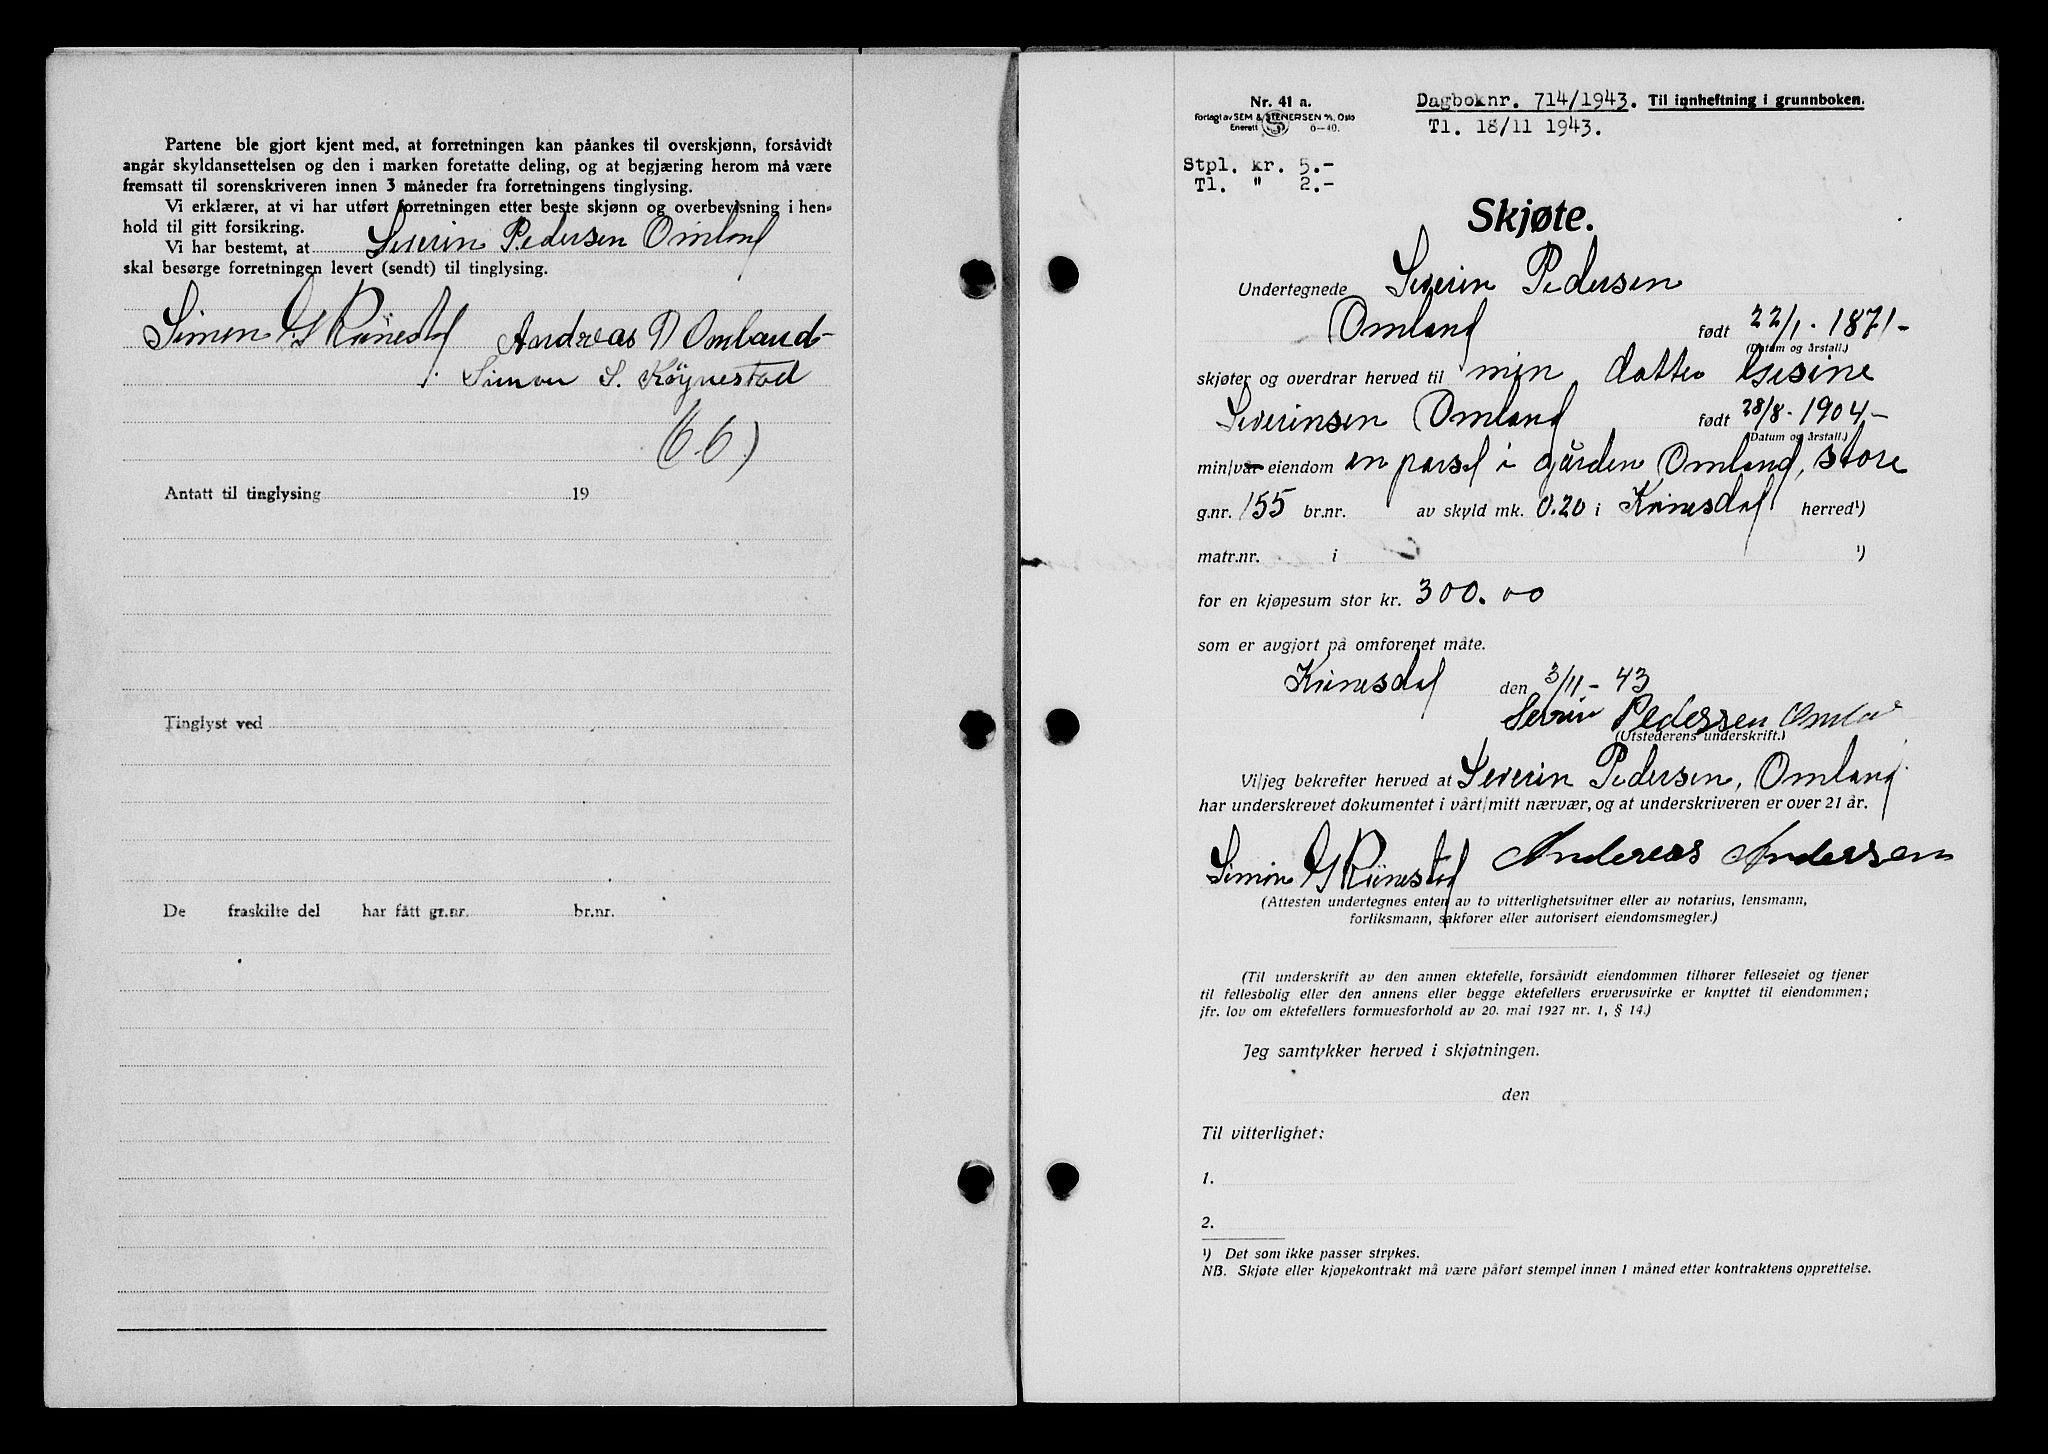 Partene ble gjort kjent med, at forretningen kan påankes til overskjønn, forsåvidt
angår skyldansettelsen og den i marken foretatte deling, og at begjæring herom må være
fremsatt til sorenskriveren innen 3 måneder fra forretningens tinglysing.
Vi erklærer, at vi har utført forretningen etter beste skjønn og overbevisning i hen-
hold til gitt forsikring.
Vi har bestemt, at Severin Pedersen Omland
skal besørge forretningen levert (sendt) til tinglysing.
Simon G Røinestad Andreas P Omland-
Simon S. Røynestad
(6.6)
Antatt til tinglysing 19
Tinglyst ved
De fraskilte del har fått gr.nr. br.nr.
Nr. 41 a.
Forlagt av SEM & STENERSEN A/S, Oslo
Enerett S 6-40.
Dagboknr. 714/1943. Til innheftning i grunnboken.
Tl. 18/11 1943.
Stpl. kr. 5.-
Tl. " 2.-
Skjøte.
Undertegnede Severin Pedersen
Omland født 22/1. 1871-
(Datum og årstall.)
skjøter og overdrar herved til min datter Gesine
Severinsen Omland født 28/8. 1904-
(Datum og årstall.)
min/vår eiendom en parsel i gården Omland, store
g.nr. 155 br.nr. av skyld mk. 0.20 i Kvinesdal herred¹)
matr.nr. i ¹)
for en kjøpesum stor kr. 300.00
som er avgjort på omforenet måte.
Kvinesdal den 3/11-43
Severin Pedersen Omland
(Utstederens underskrift.)
Vi/jeg bekrefter herved at Severin Pedersen, Omland
har underskrevet dokumentet i vårt/mitt nærvær, og at underskriveren er over 21 år.
Simon G Røinestad Andereas Anderssen
(Attesten undertegnes enten av to vitterlighetsvitner eller av notarius, lensmann,
forliksmann, sakfører eller autorisert eiendomsmegler.)
(Til underskrift av den annen ektefelle, forsåvidt eiendommen tilhører felleseiet og tjener
til fellesbolig eller den annens eller begge ektefellers ervervsvirke er knyttet til eiendommen;
jfr. lov om ektefellers formuesforhold av 20. mai 1927 nr. 1, § 14.)
Jeg samtykker herved i skjøtningen.
den
Til vitterlighet:
1.
2.
¹) Det som ikke passer strykes.
NB. Skjøte eller kjøpekontrakt må være påført stempel innen 1 måned etter kontraktens opprettelse.